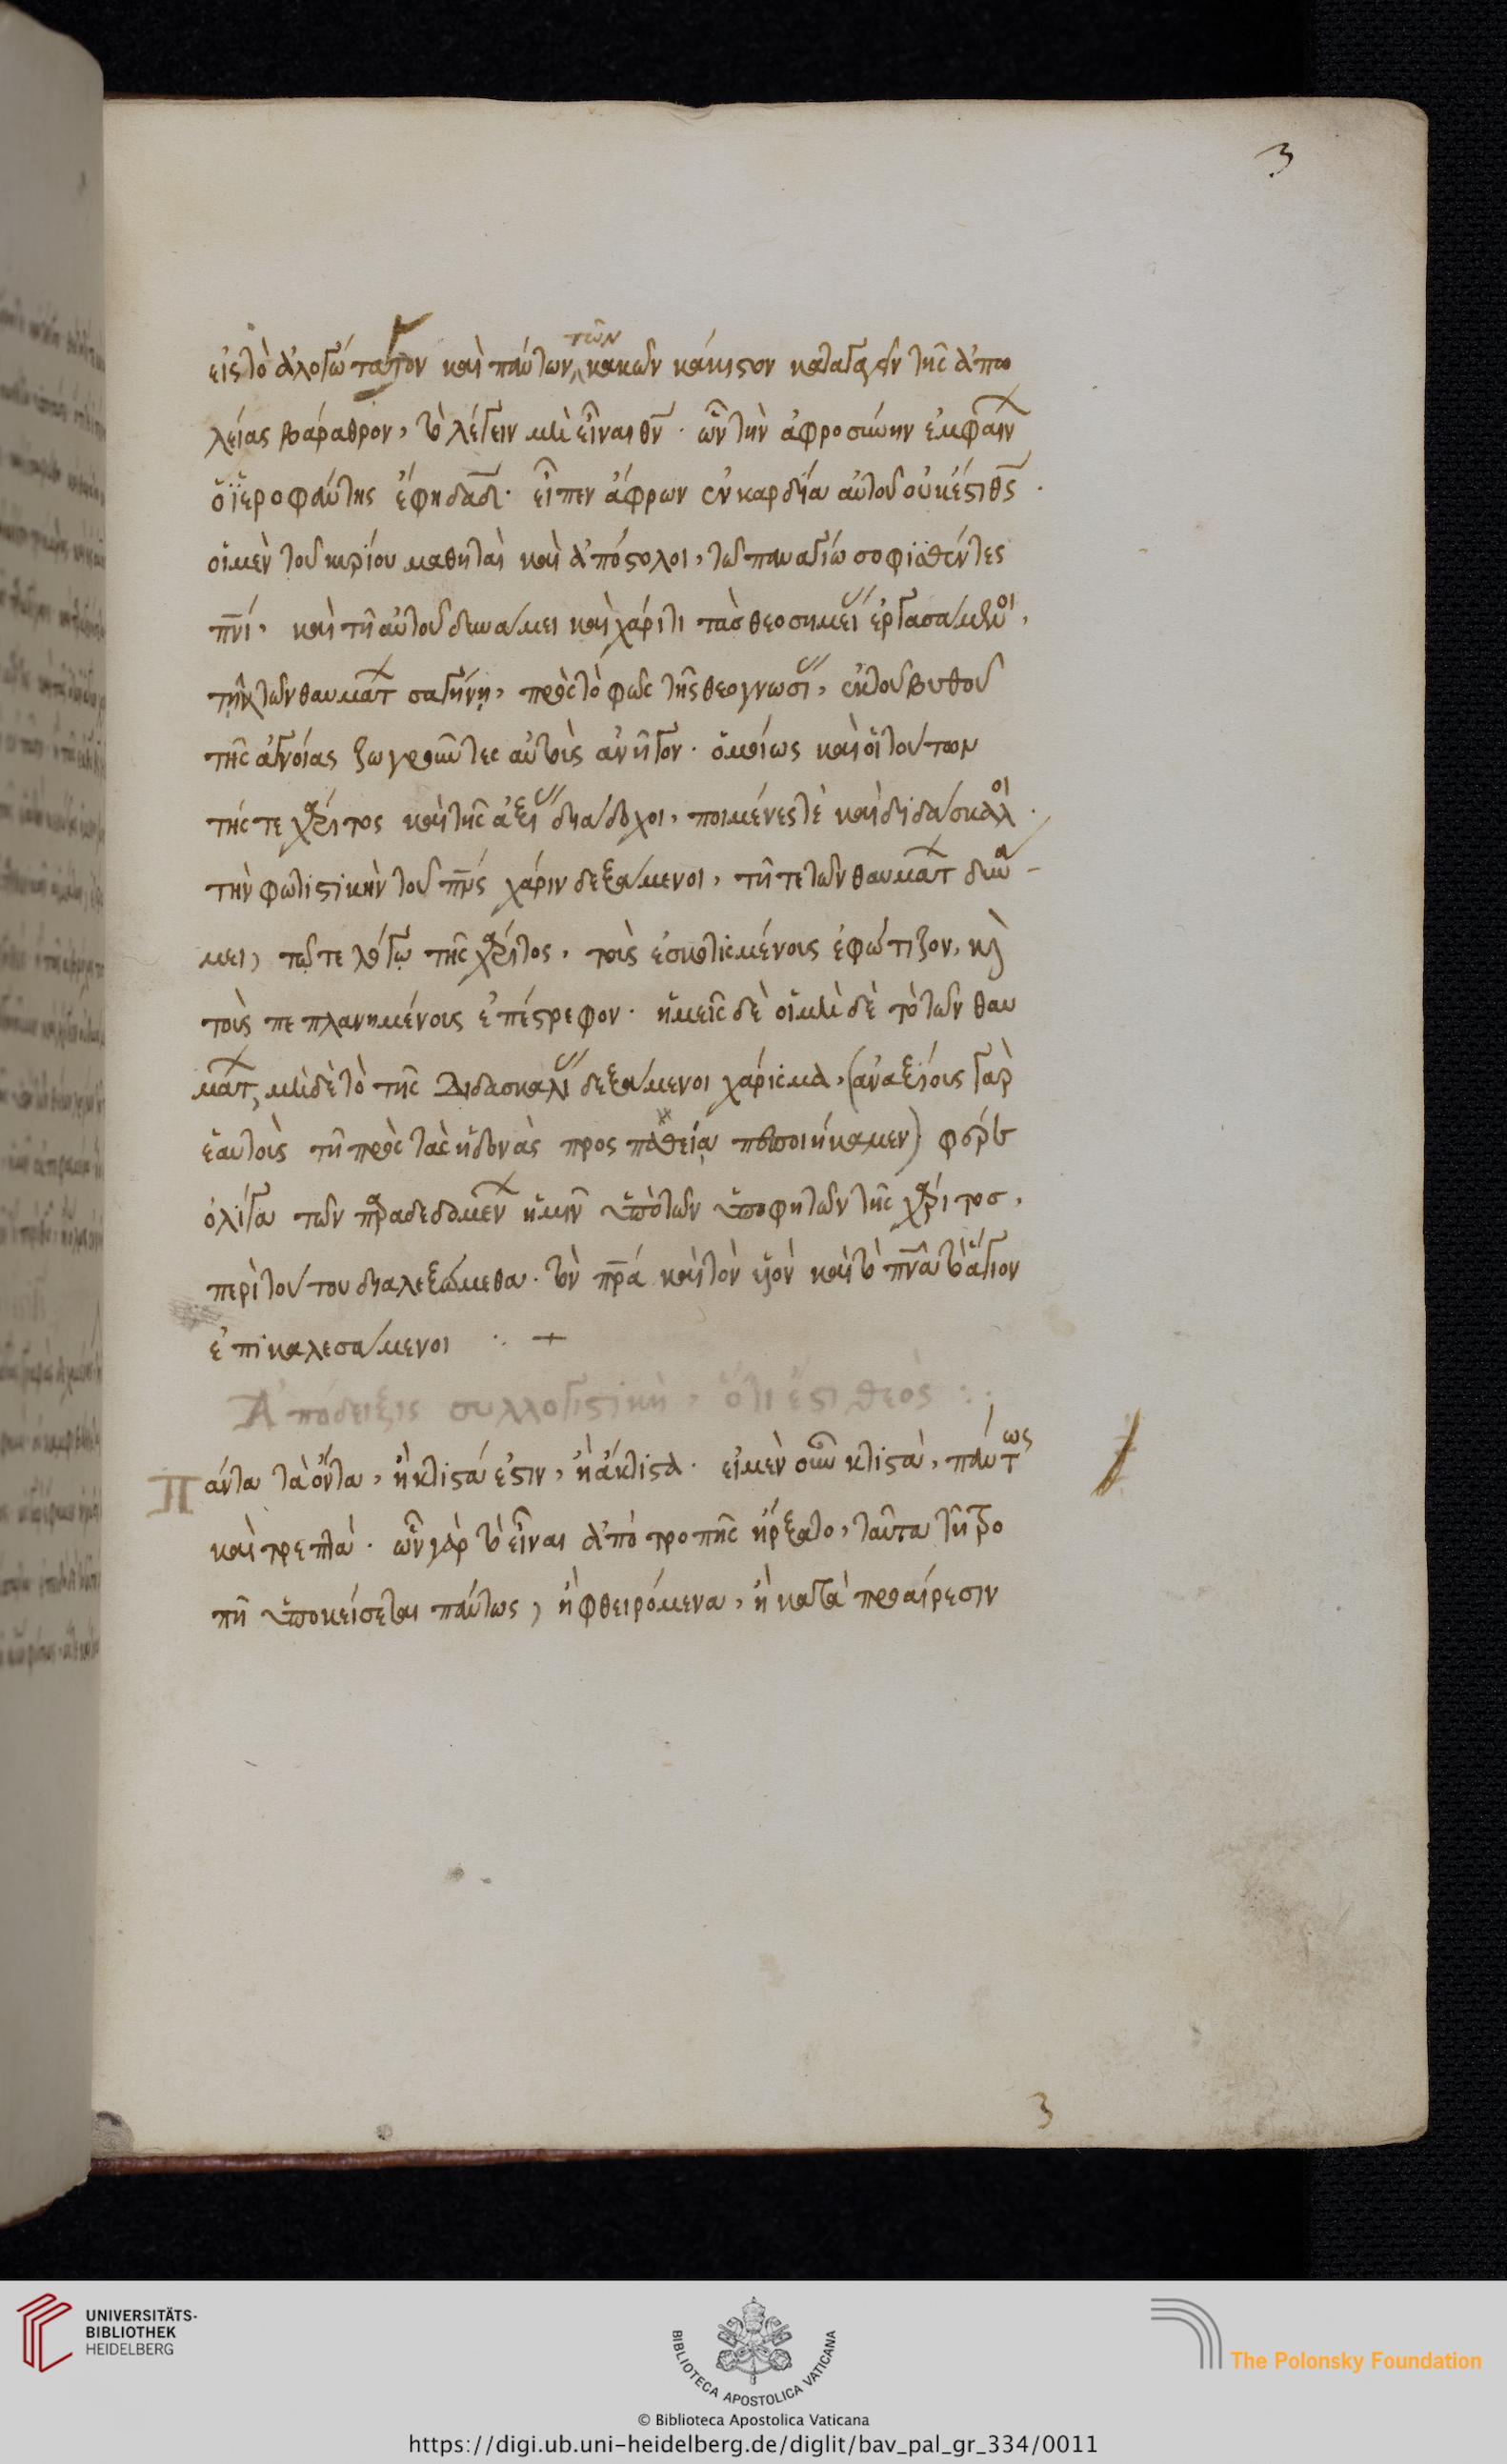 3
εἰς τὸ ἀλογώτατον καὶ πάντων τῶν κακῶν κάκιστον καταγαγεῖν τῆς ἀπω
λείας βάραθρον, τὸ λέγειν μὴ εἶναι θν̅. ὧν τὴν ἀφροσύνην ἐμφαίν
ὁ ἱεροφάντης ἔφη δαδ̅. εἶπεν ἄφρων ἐν καρδία αὐτοῦ οὐκ ἔστι θς̅.
οἱ μὲν τοῦ κυρίου μαθηταὶ καὶ ἀπόστολοι, τῶ παναγίω σοφισθέντες
πνι̅, καὶ τῆ αὐτοῦ δυνάμει καὶ χάριτι τὰς θεοσημεί ἐργασάμενοι,
τῆ τῶν θαυματ σαγήνη, πρὸς τὸ φῶς τῆς θεογνωσί, ἐκ τοῦ βυθοῦ
τῆς ἀγνοίας ζωγροῦντες αὐτοὺς ἀνῆγον. ὁμοίως καὶ οἱ τούτων
τῆς τε χάριτος καὶ τῆς ἀξί διάδοχοι, ποιμένες τὲ καὶ διδάσκαλοι.
τὴν φωτιστικὴν τοῦ πνς̅ χάριν δεξάμενοι, τῆ τε τῶν θαυματ δυνά-
μει, τῷ τε λόγῳ τῆς χάριτος, τοὺς ἐσκοτισμένους ἐφώτιζον, κὶ
τοὺς πεπλανημένους ἐπέστρεφον. ἡμεῖς δὲ οἱ μὴ δὲ τὸ τῶν θαυ
ματ, μὴ δὲ τὸ τῆς διδασκαλί δεξάμενοι χάρισμα, (ἀναξίους γὰρ
ἑαυτοὺς τῆ πρὸς τὰς ἡδονὰς προσπαθείᾳ πεποιήκαμεν) φέρε
ὀλίγα τῶν παραδεδομέν ἡμῖν ὑπὸ τῶν ὑποφητῶν τῆς χάριτος,
περὶ τούτου διαλεξώμεθα. τὸν πρα̅ καὶ τὸν υἱὸν καὶ τὸ πνα̅ τὸ ἅγιον
ἐπικαλεσάμενοι ∴ +
Ἀπόδειξις συλλογιστικὴ, ὅτι ἔστι θεὸς :.
Πάντα τὰ ὄντα, ἢ κτιστά ἐστιν, ἢ ἄκτιστα. εἰ μὲν οὖν κτιστὰ, πάντως
καὶ τρεπτά. ὧν γὰρ τὸ εἶναι ἀπὸ τροπῆς ἤρξατο, ταῦτα τῆ τρο
πῆ ὑποκείσεται πάντως, ἢ φθειρόμενα, ἢ κατὰ προαίρεσιν
3
UNIVERSITÄTS-
BIBLIOTHEK
HEIDELBERG
BIBLIOTECA APOSTOLICA VATICANA
The Polonsky Foundation
© Biblioteca Apostolica Vaticana
https://digi.ub.uni-heidelberg.de/diglit/bav_pal_gr_334/0011